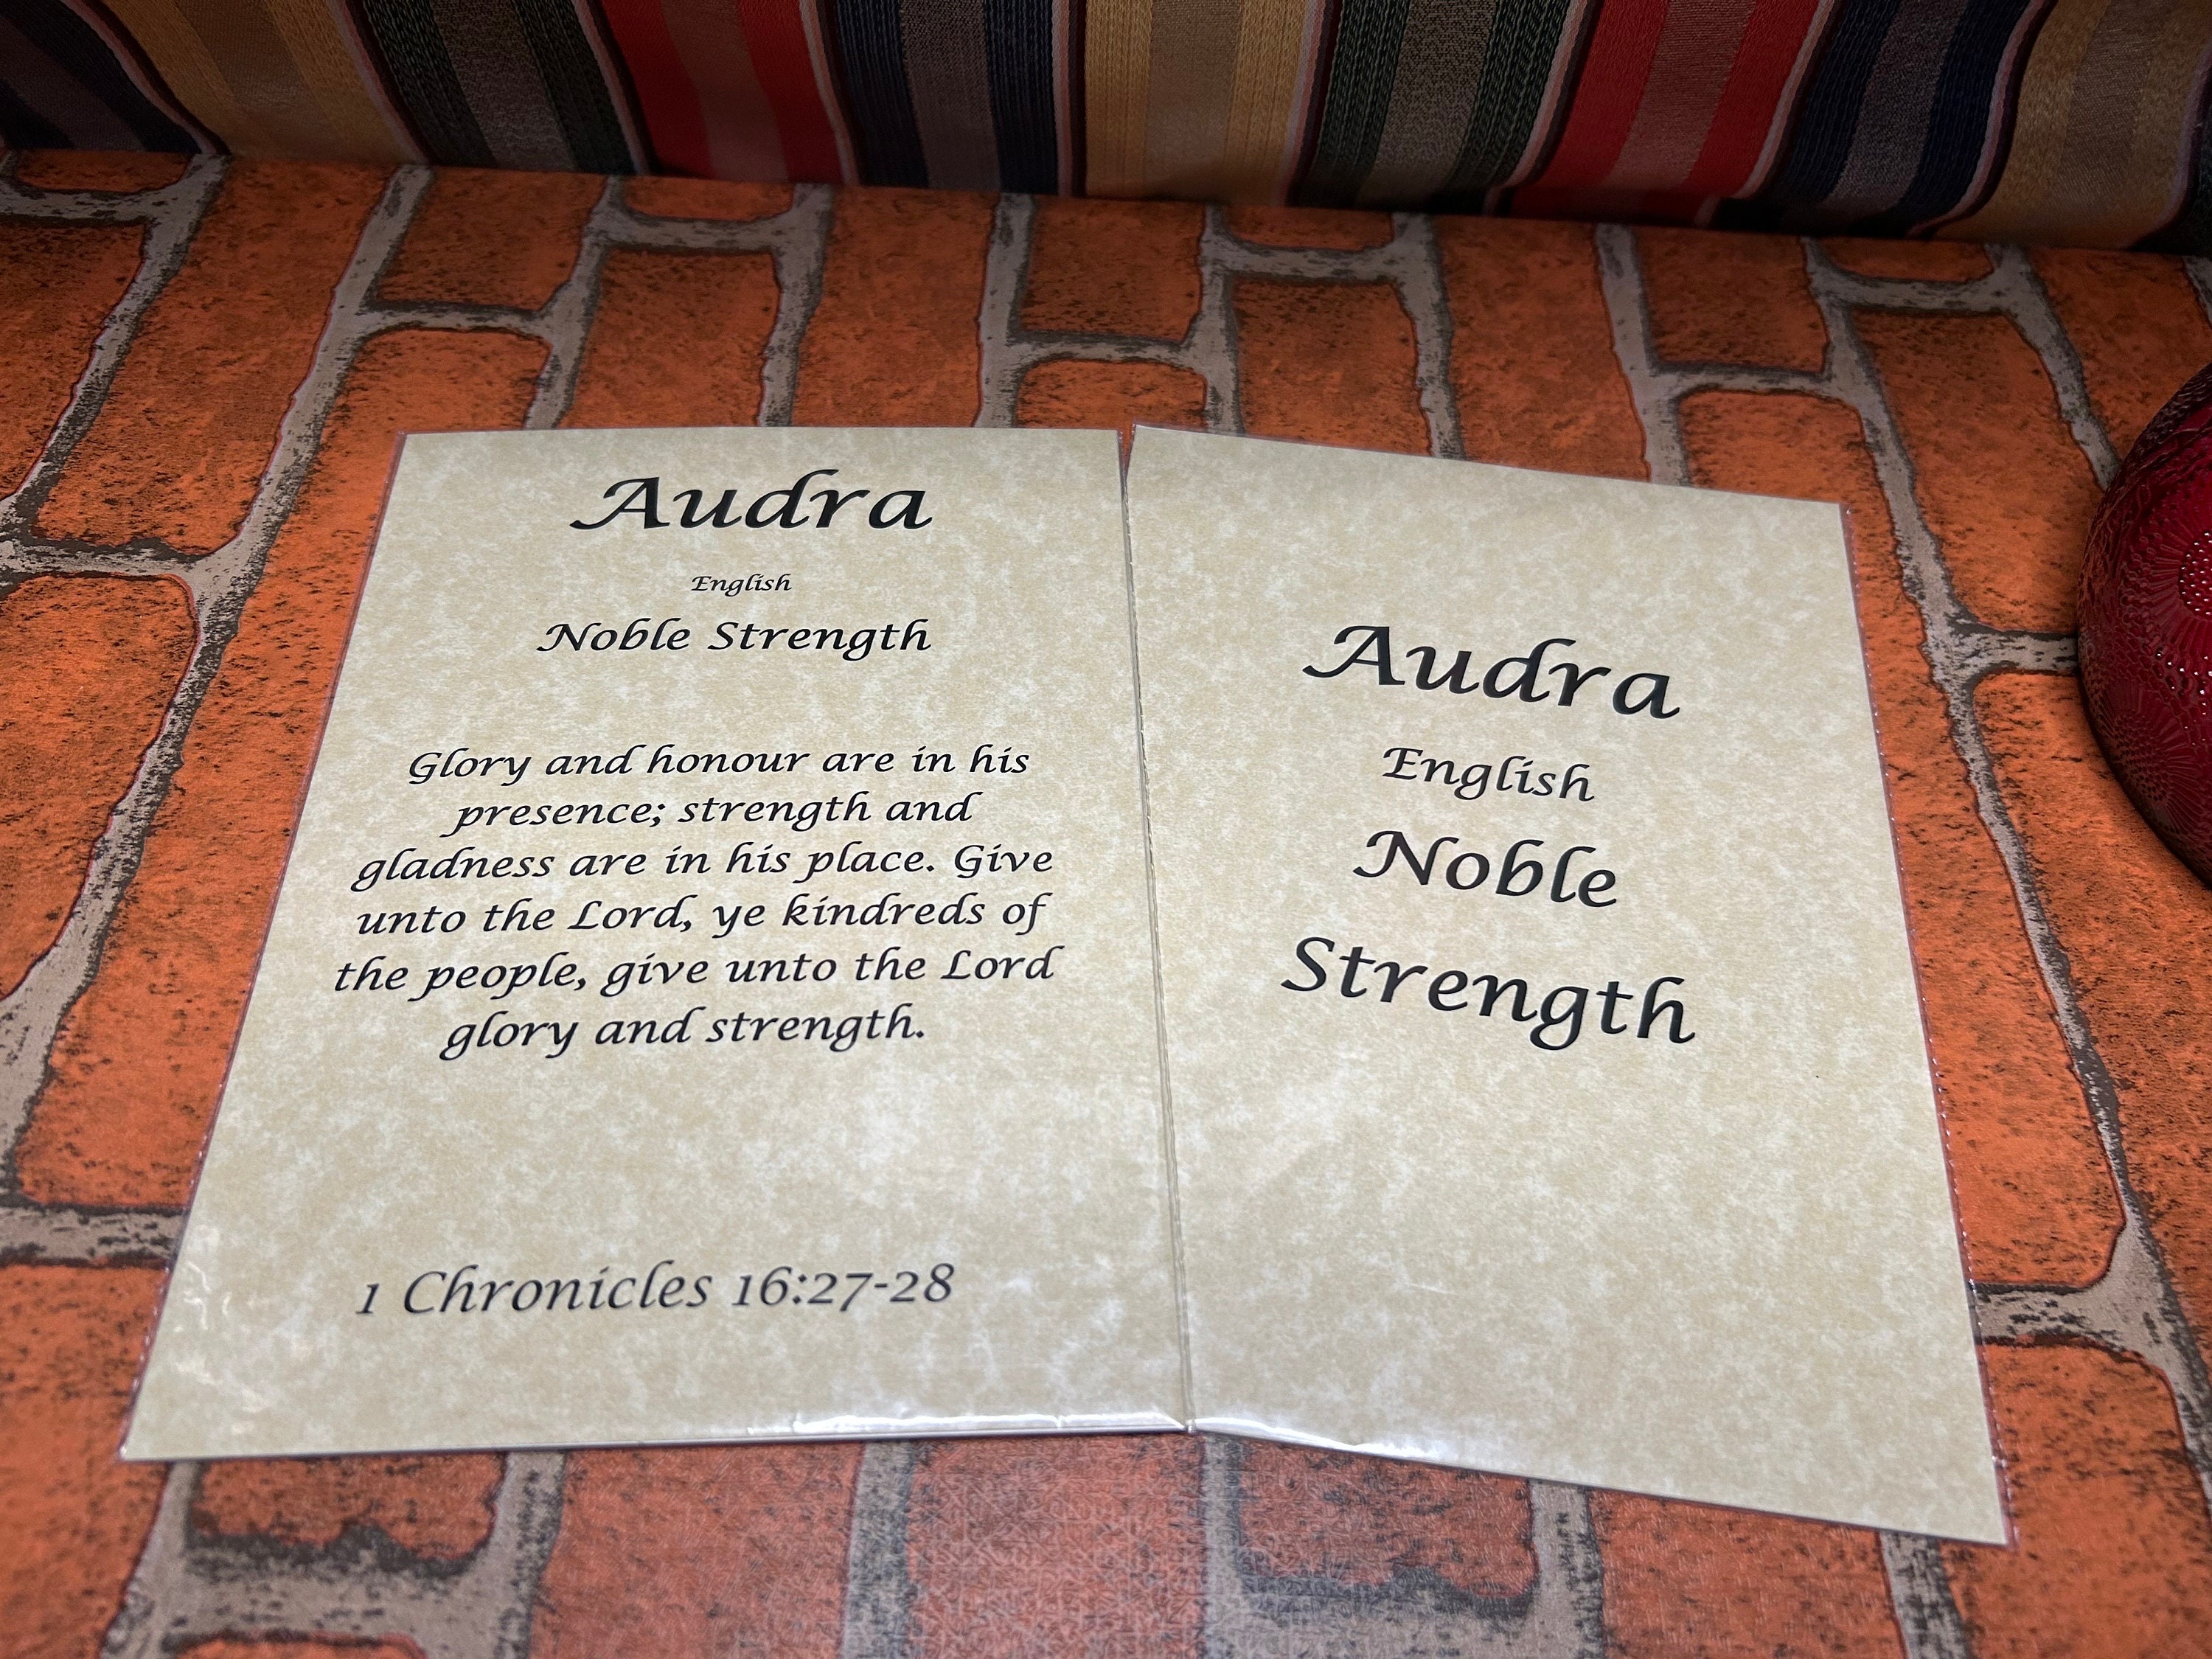 Audra
English
Noble Strength
Glory and honour are in his
presence; strength and
gladness are in his place. Give
unto the Lord, ye kindreds of
the people, give unto the Lord
glory and strength.
1 Chronicles 16:27-28
Audra
English
Noble
Strength